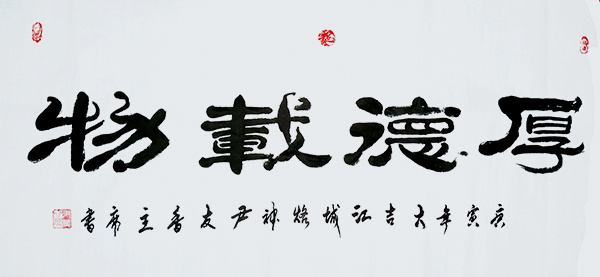 厚德載物
庚寅年大吉江城神尹友香主席書